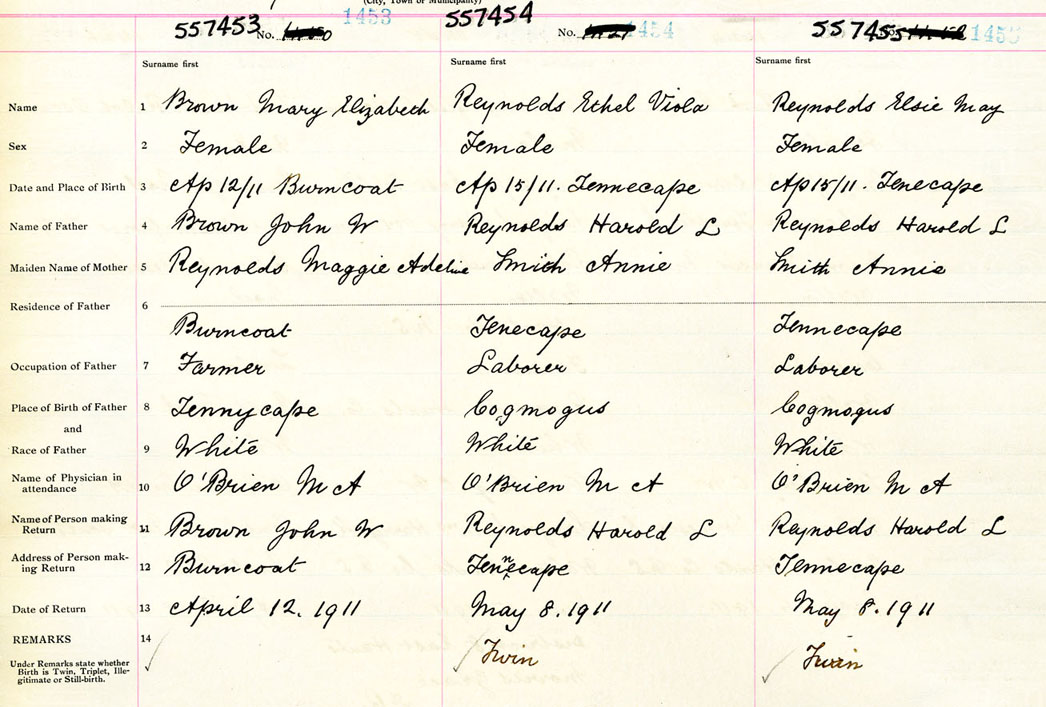 (City, Town or Municipality)
557453 No. 1453 557454 No. 1454 557455 1455
Surname first Surname first Surname first
Name 1 Brown Mary Elizabeth Reynolds Ethel Viola Reynolds Elsie May
Sex 2 Female Female Female
Date and Place of Birth 3 Ap 12/11 Burncoat Ap 15/11. Tennecape Ap 15/11. Tenecape
Name of Father 4 Brown John W Reynolds Harold L Reynolds Harold L
Maiden Name of Mother 5 Reynolds Maggie Adeline Smith Annie Smith Annie
Residence of Father 6
Burncoat Tenecape Tennecape
Occupation of Father 7 Farmer Laborer Laborer
Place of Birth of Father 8 Tennycape Cogmogus Cogmogus
and
Race of Father 9 White White White
Name of Physician in
attendance 10 O'Brien M A O'Brien M A O'Brien M A
Name of Person making
Return 11 Brown John W Reynolds Harold L Reynolds Harold L
Address of Person mak-
ing Return 12 Burncoat Tennecape Tennecape
Date of Return 13 April 12. 1911 May 8. 1911 May 8. 1911
REMARKS 14
Under Remarks state whether
Birth is Twin, Triplet, Ille-
gitimate or Still-birth.
Twin Twin